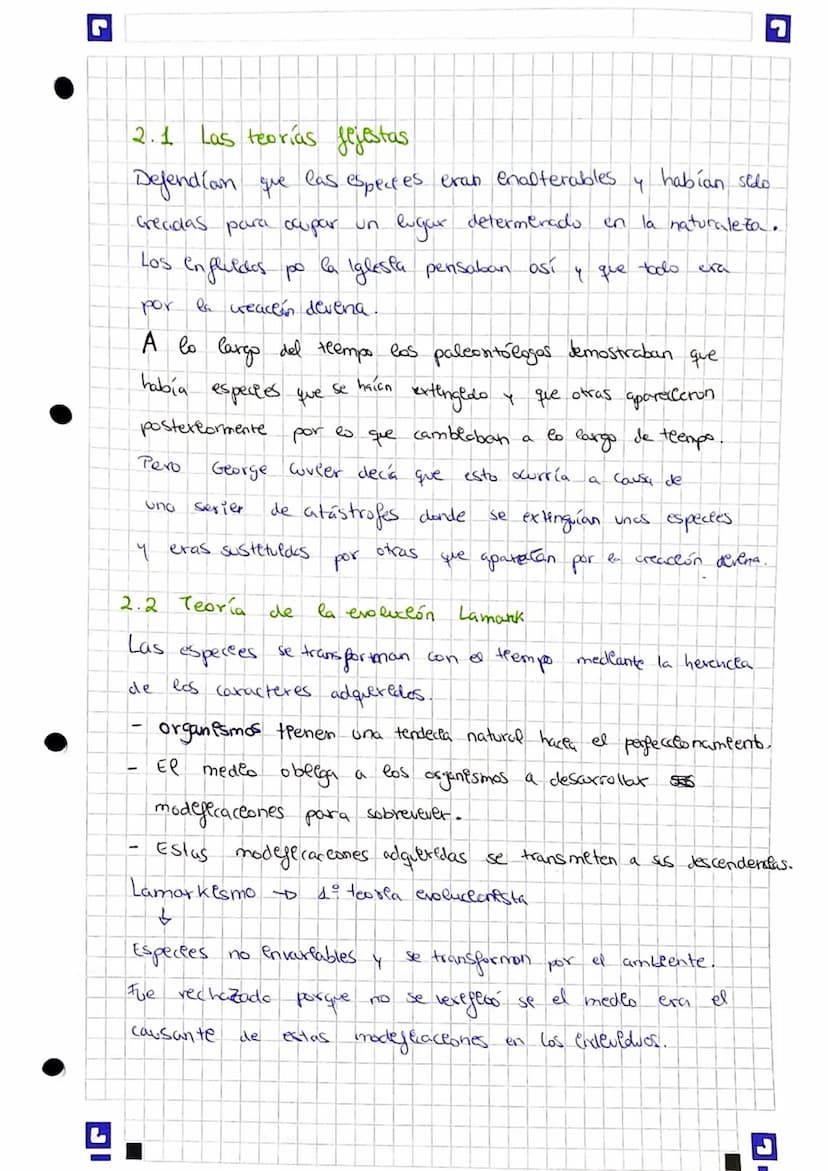 2.1 Las teorías fijistas
Defendían que las especies eran inalterables y habían sido
creadas para ocupar un lugar determinado en la naturaleza.
Los influidos po la Iglesia pensaban así y que todo era
por la creación divina.
A lo largo del tiempo los paleontólogos demostraban que
había especies que se haían extingido y que otras aparecieron
posteriormente por lo que cambiaban a lo largo de tiempo.
Pero George Cuvier decía que esto ocurría a causa de
una serier de catástrofes donde se extinguían unas especies
y eras sustituidas por otras que aparecían por la creación divina.
2.2 Teoría de la evolución Lamark
Las especies se transforman con el tiempo mediante la herencia
de los caracteres adquiridos.
- organismos tienen una tendecia natural hacia el perfeccionamiento.
- El medio obliga a los organismos a desarrollar
modificaciones para sobrevivir.
- Estas modificaciones adquiridas se transmeten a sus descendientas.
Lamarkismo → 1º teoría evolucionista
↓
Especies no invariables y se transforman por el ambiente.
Fue rechazado porque no se verificó si el medio era el
causante de estas modificaciones en los individuos.